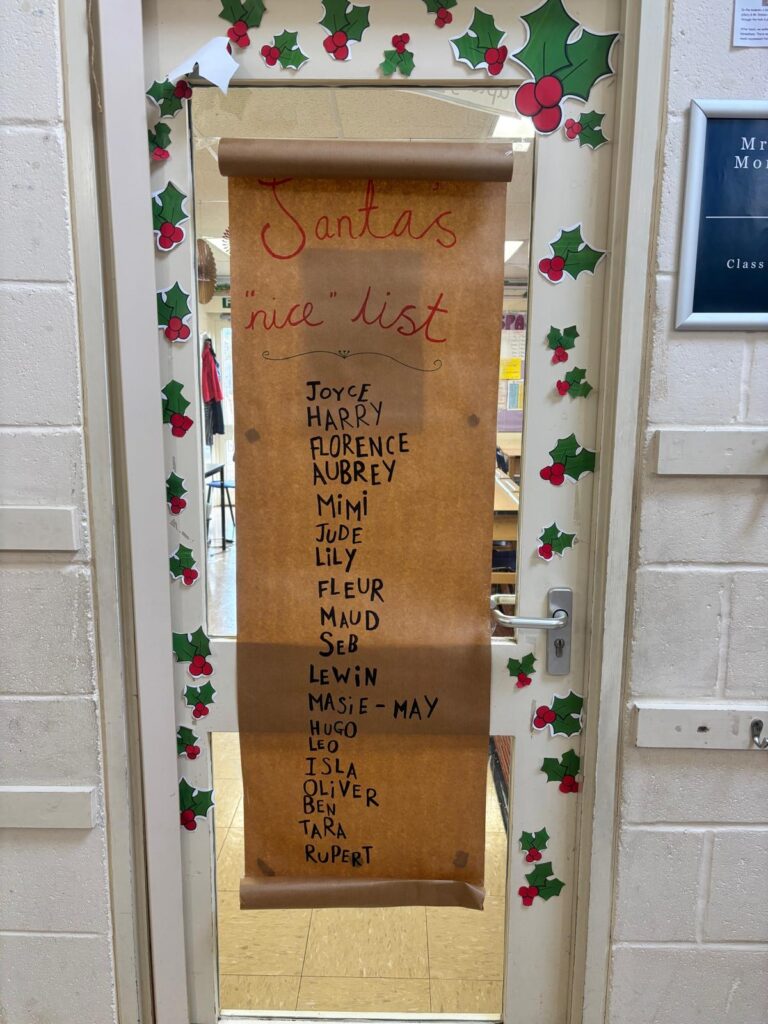 Santa's
"nice" list
JOYCE
HARRY
FLORENCE
AUBREY
MiMi
JUDE
LiLY
FLEUR
MAUD
SEB
LEWiN
MASiE-MAY
HUGO
LEO
ISLA
OLiVER
BEN
TARA
RUPERT
Mr
Mor
Class
SPA